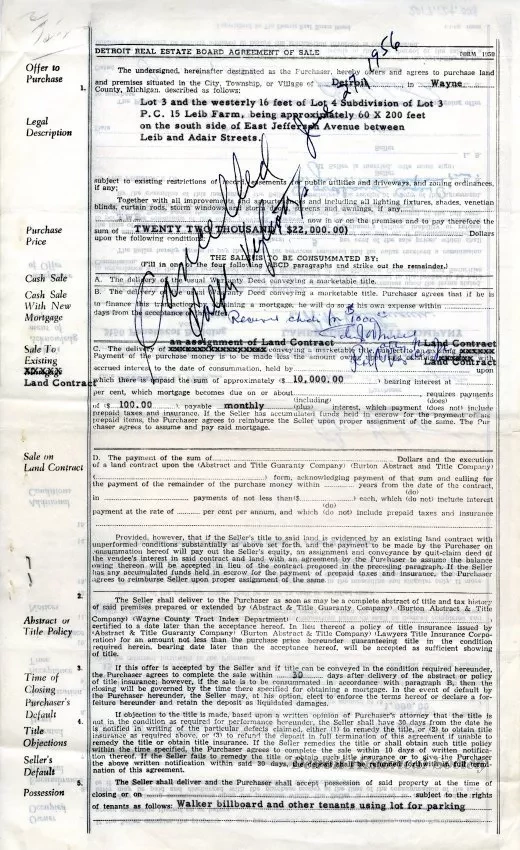 DETROIT REAL ESTATE BOARD AGREEMENT OF SALE
FORM 1950
Offer to Purchase
1.
The undersigned, hereinafter designated as the Purchaser, hereby offers and agrees to purchase land
and premises situated in the City, Township, or Village of Detroit, in Wayne
County, Michigan, described as follows:
Legal Description
Lot 3 and the westerly 16 feet of Lot 4 Subdivision of Lot 3
P.C. 15 Leib Farm, being approximately 60 X 200 feet
on the south side of East Jefferson Avenue between
Leib and Adair Streets.
Cancelled
1956
subject to existing restrictions of easements for public utilities and driveways, and zoning ordinances,
if any;
Together with all improvements and including all lighting fixtures, shades, venetian
blinds, curtain rods, storm windows and screens and awnings, if any
now in or on the premises and to pay therefore the
Purchase Price
sum of TWENTY TWO THOUSAND ($22,000.00) Dollars
upon the following conditions
THE SALE IS TO BE CONSUMMATED BY:
(Fill in one of the four following ABCD paragraphs and strike out the remainder.)
Cash Sale
A. The delivery of the usual Warranty Deed conveying a marketable title.
Cash Sale With New Mortgage
B. The delivery of the usual Warranty Deed conveying a marketable title. Purchaser agrees that if he is
to finance this transaction by obtaining a mortgage, he will do so at his own expense within
days from the acceptance of
an assignment of Land Contract
Land Contract
Sale To Existing
XXXXX
Land Contract
C. The delivery of conveying a marketable title,
Payment of the purchase money is to be made less the amount
Land Contract
with
accrued interest to the date of consummation, held by upon
which there is unpaid the sum of approximately ($ 10,000.00 ) bearing interest at
per cent, which mortgage becomes due on or about requires payments
(including) (does)
of ($ 100.00 ) payable monthly (plus) interest, which payment (does not) include
prepaid taxes and insurance. If the Seller has accumulated funds held in escrow for the payment of
prepaid items, the Purchaser agrees to reimburse the Seller upon proper assignment of the same. The Pur-
chaser agrees to assume and pay said mortgage.
Sale on Land Contract
D. The payment of the sum of Dollars and the execution
of a land contract upon the (Abstract and Title Guaranty Company) (Burton Abstract and Title Company)
( ) form, acknowledging payment of that sum and calling for
the payment of the remainder of the purchase money within years from the date of the contract,
(do)
in payments of not less than($ ) each, which (do not) include interest
(do)
payment at the rate of per cent per annum, and which (do not) include prepaid taxes and insurance
Provided, however, that if the Seller's title to said land is evidenced by an existing land contract with
unperformed conditions substantially as above set forth, and the payment to be made by the Purchaser on
consummation hereof will pay out the Seller's equity, an assignment and conveyance by quit-claim deed of
the vendee's interest in said contract and land with an agreement by the Purchaser to assume the balance
owing thereon will be accepted in lieu of the contract proposed in the preceding paragraph. If the Seller
has any accumulated funds held in escrow for the payment of prepaid taxes and insurance, the Purchaser
agrees to reimburse Seller upon proper assignment of the same.
2.
Abstract or Title Policy
The Seller shall deliver to the Purchaser as soon as may be a complete abstract of title and tax history
of said premises prepared or extended by (Abstract & Title Guaranty Company) (Burton Abstract & Title
Company) (Wayne County Tract Index Department) ( )
certified to a date later than the acceptance hereof. In lieu thereof a policy of title insurance issued by
(Abstract & Title Guaranty Company) (Burton Abstract & Title Company) (Lawyers Title Insurance Corpo-
ration) for an amount not less than the purchase price hereunder guaranteeing title in the condition
required herein, bearing date later than the acceptance hereof, will be accepted as sufficient showing
of title.
3.
Time of Closing
Purchaser's Default
If this offer is accepted by the Seller and if title can be conveyed in the condition required hereunder,
the Purchaser agrees to complete the sale within 30 days after delivery of the abstract or policy
of title insurance; however, if the sale is to be consummated in accordance with paragraph B, then the
closing will be governed by the time there specified for obtaining a mortgage. In the event of default by
the Purchaser hereunder, the Seller may, at his option, elect to enforce the terms hereof or declare a for-
feiture hereunder and retain the deposit as liquidated damages.
4.
Title Objections
If objection to the title is made, based upon a written opinion of Purchaser's attorney that the title is
not in the condition as required for performance hereunder, the Seller shall have 30 days from the date he
is notified in writing of the particular defects claimed, either (1) to remedy the title, or (2) to obtain title
insurance as required above, or (3) to refund the deposit in full termination of this agreement if unable to
remedy the title or obtain title insurance. If the Seller remedies the title or shall obtain such title policy
within the time specified, the Purchaser agrees to complete the sale within 10 days of written notifica-
Seller's Default
tion thereof. If the Seller fails to remedy the title or obtain such title insurance or to give the Purchaser
the above written notification within said 30 days, the deposit shall be refunded forthwith in full termi-
nation of this agreement.
5.
Possession
The Seller shall deliver and the Purchaser shall accept possession of said property at the time of
closing or on subject to the rights
of tenants as follows: Walker billboard and other tenants using lot for parking